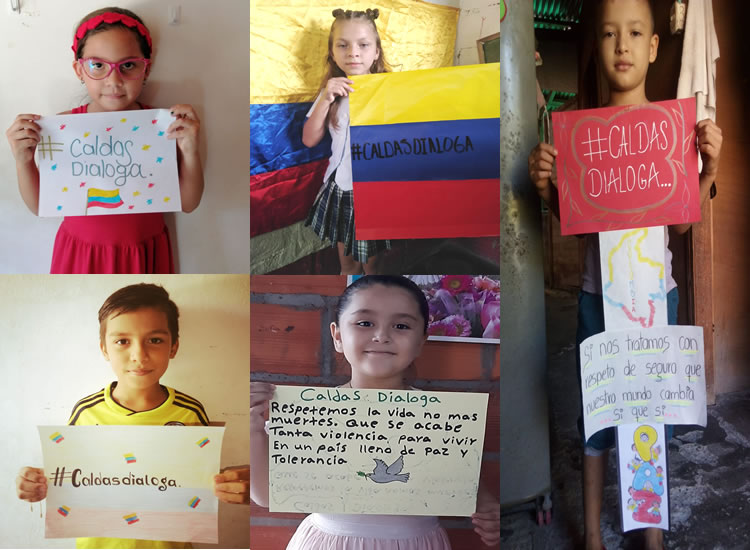 # Caldas
Dialoga.
#CALDASDIALOGA
#CALDAS
DIALOGA...
Si nos tratamos con
respeto de seguro que
nuestro mundo cambia
si que si...
PAZ
#Caldasdialoga.
Caldas Dialoga
Respetemos la vida no mas
muertes. Que se acabe
Tanta violencia para vivir
En un país lleno de Paz y
Tolerancia